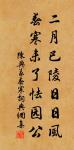 二月巴陵日日風
春寒未了怯園公
陳與義春寒詞典網集